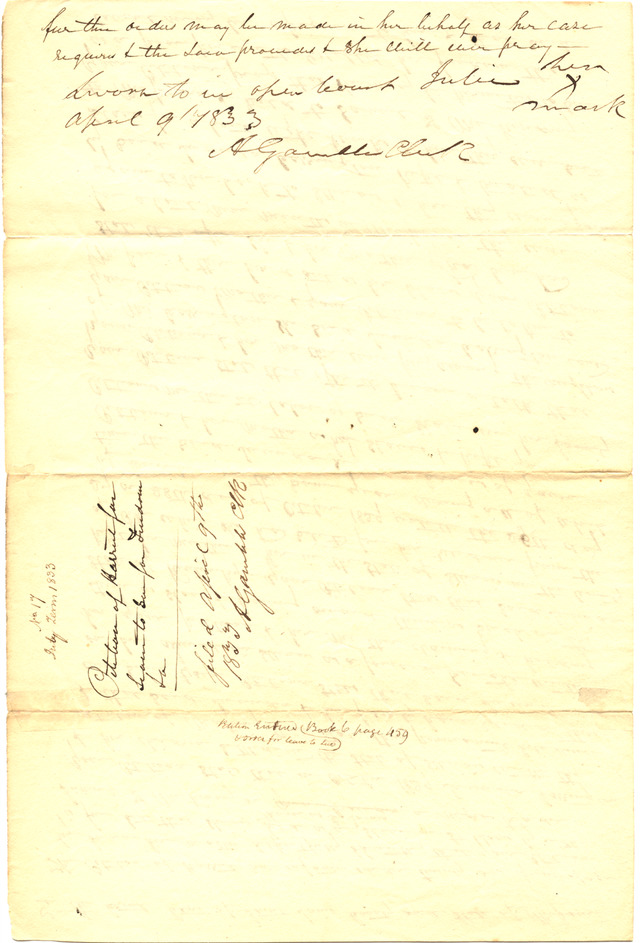 further orders may be made in her behalf as her case
requires & the Law provides & She will ever pray—
Sworn to in open Court Julia her
April 9th 1833 X
mark
A Gamble Clerk
No 17
July Term 1833
Petition of Harriet for
leave to sue for Freedom
&c
filed April 9th
1833
A Gamble Clk
Entered Book 6 page 459
order for leave to sue